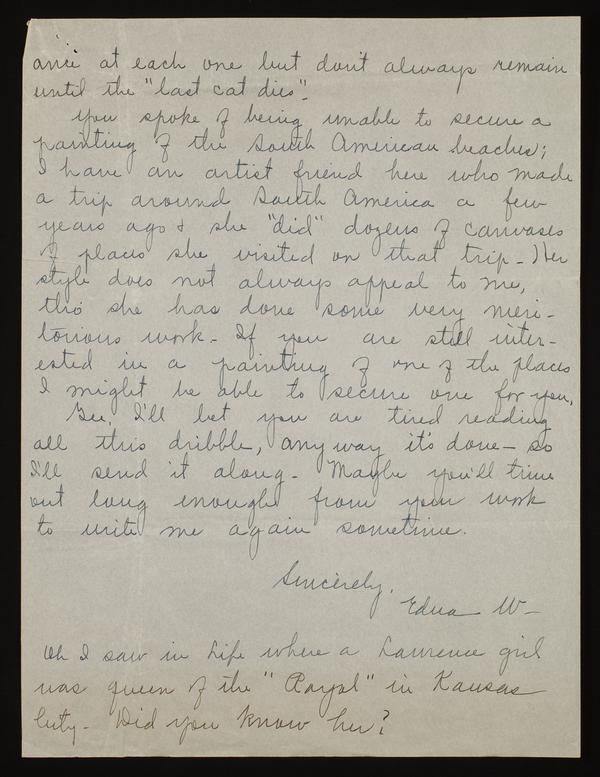 ance at each one but don't always remain
until the "last cat dies".
You spoke of being unable to secure a
painting of the South American beaches;
I have an artist friend here who made
a trip around South America a few
years ago & she "did" dozens of canvases
of places she visited on that trip - Her
style does not always appeal to me,
tho she has done some very meri-
torious work - If you are still inter-
ested in a painting of one of the places
I might be able to secure one for you.
Gee, I'll bet you are tired reading
all this dribble, anyway it's done - so
I'll send it along - Maybe you'll time
out long enough from your work
to write me again sometime.
Sincerely,
Edna W -
Oh I saw in Life where a Lawrence girl
was queen of the "Royal" in Kansas
City - Did you know her?